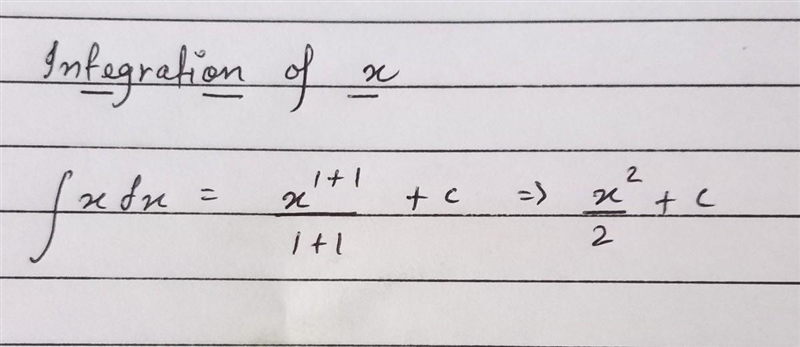 Integration of x
∫ x dx = x^{1+1}/1+1 + c => x^2/2 + c